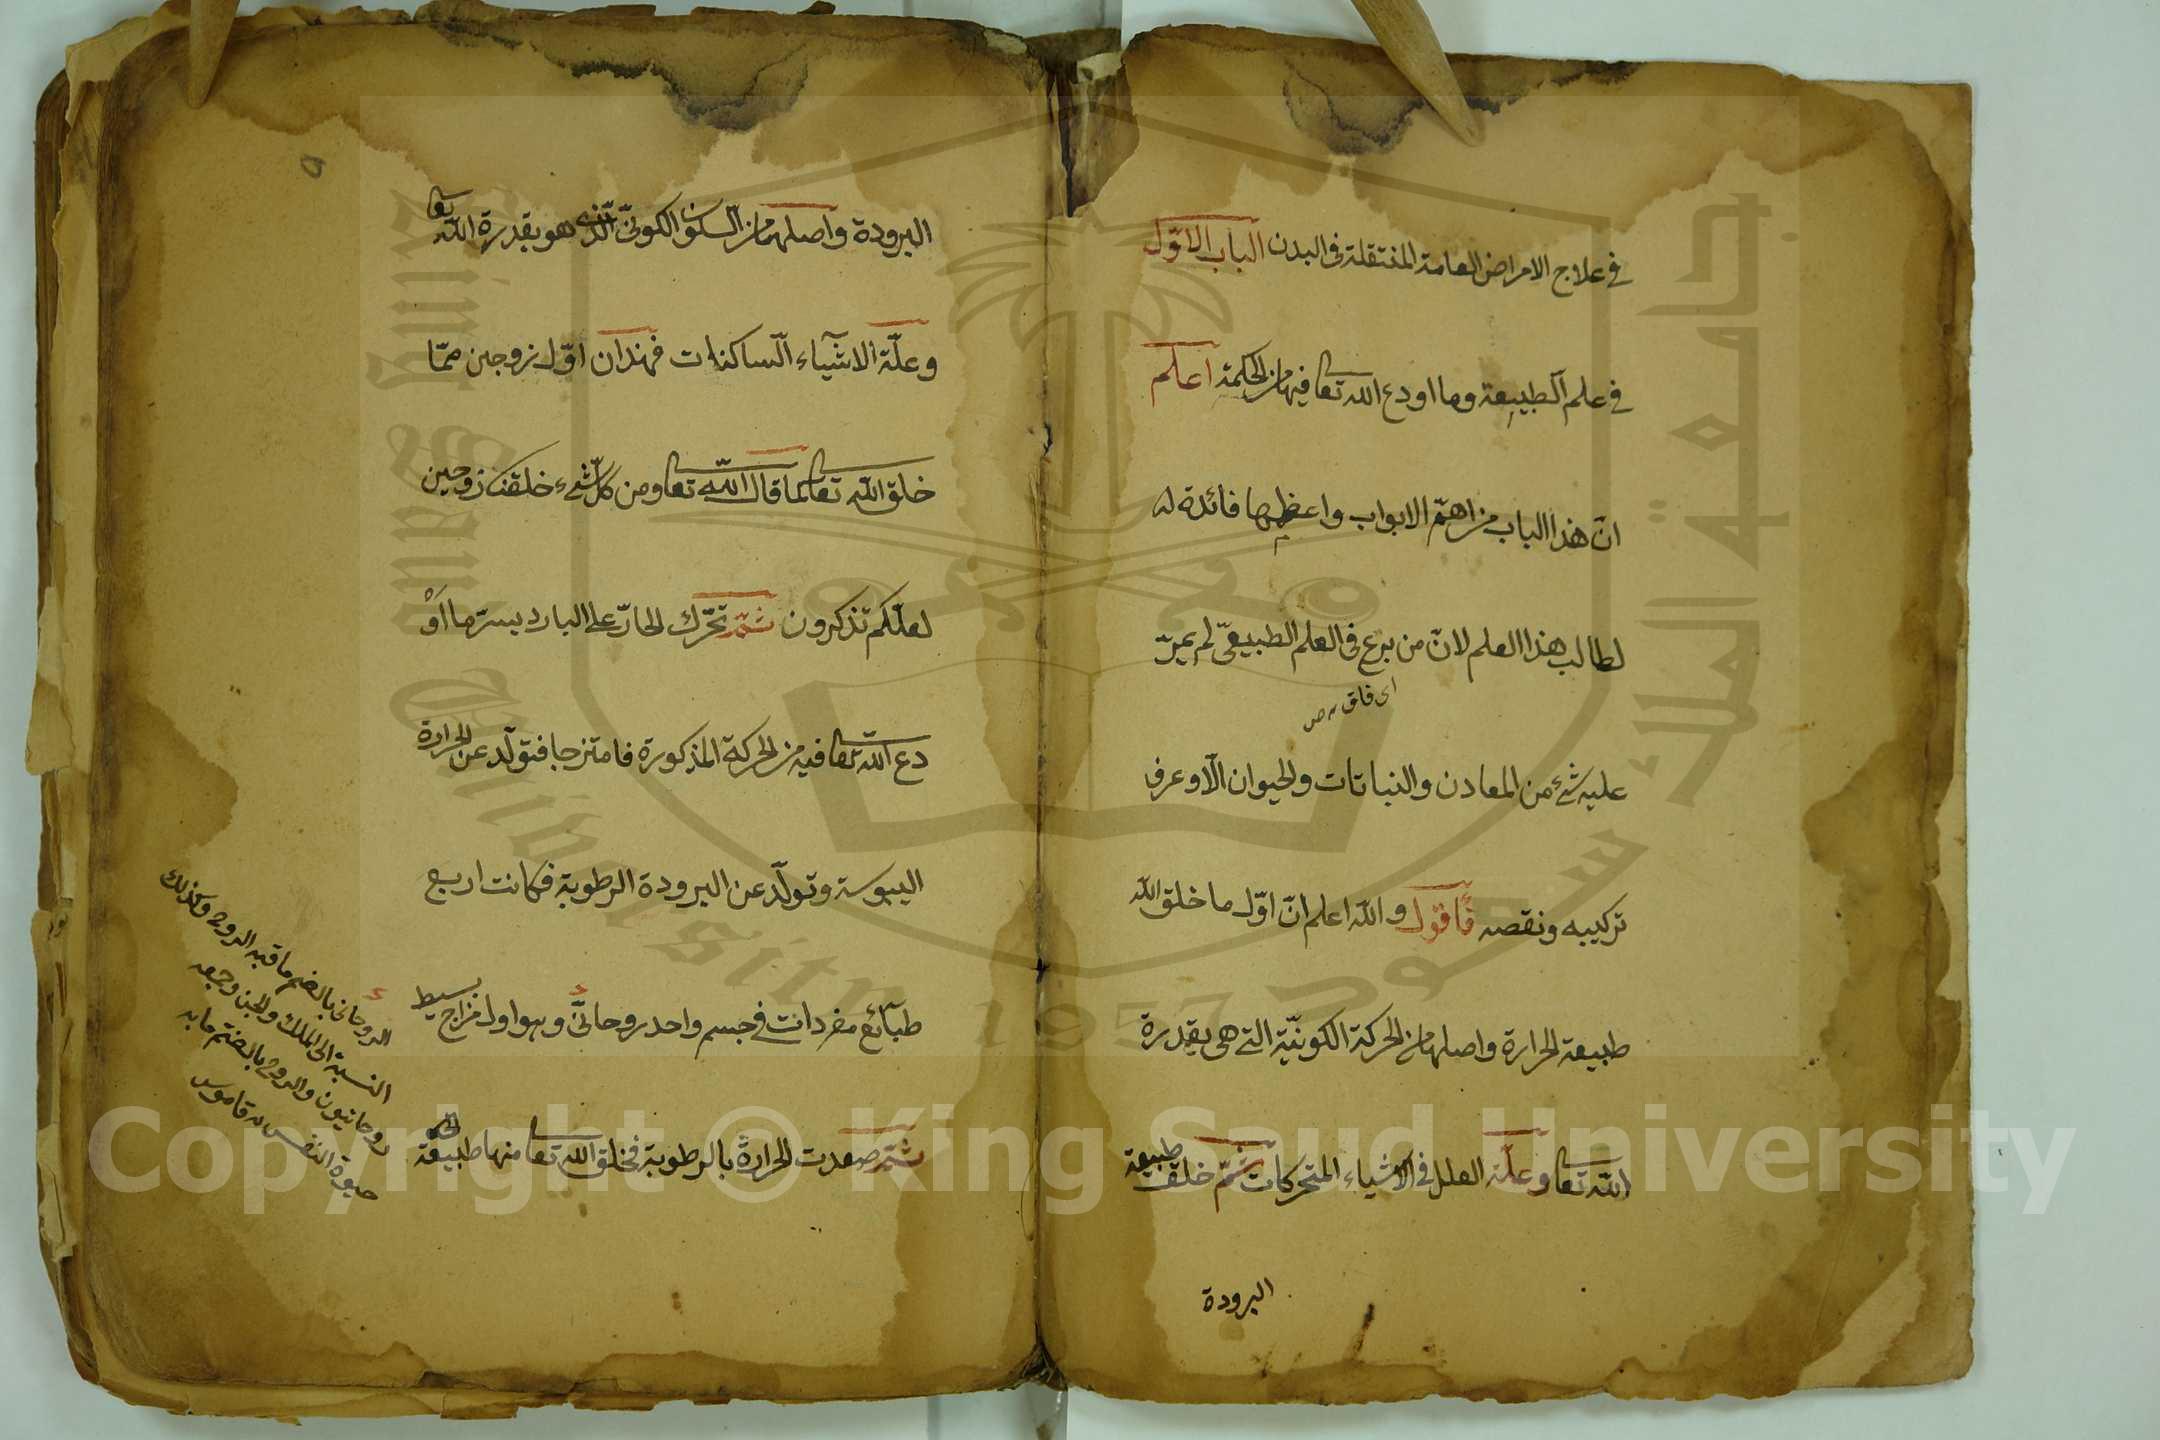 في علاج الامراض العامة المنتقلة في البدن الباب الاوّل
في علم الطبيعة وما اودع الله تعا فيها من الحكمة اعلم
انّ هذا الباب من اهمّ الابواب واعظمها فائدة له
لطالب هذا العلم لانّ من برع في العلم الطبيعيّ لم يمرّ
اى فاق
عليه شئ من المعادن والنباتات والحيوان الّا وعرف
تركيبه ونقصه فأقول والله اعلم انّ اوّل ما خلق الله
طبيعة الحرارة واصلها من الحركة الكونيّة التي هي بقدرة
الله تعا وعلّة العلل في الاشياء المتحركات ثمّ خلق طبيعة
البرودة
٥
البرودة واصلها من السكون الكونيّ الّذى هو بقدرة الله تعا
وعلّة الاشيآء السّاكنات فهذان اوّل زوجين ممّا
خلق الله تعا كما قال الله تعا ومن كلّ شيء خلقنا زوجين
لعلّكم تذكرون ثمّ تحرّك الحارّ على البارد بسرّ ما اَوْ
دع الله تعا فيه من الحركة المذكورة فامتزجا فتولّد عن الحرارة
اليبوسة وتولّد عن البرودة الرطوبة فكانت اربع
طبآئع مفردات في جسم واحد روحانيّ وهو اول مزاج بسيط
ثمّ صعدت الحرارة بالرطوبة فخلق الله تعا منها طبيعة
الروحانى بالضم ما فيه الروح وكذلك
النسبة الى الملك والجن وجمعه
روحانيون والروح بالضم ما به
حيوة النفس قاموس
جامعة الملك سعود
King Saud University
1957
Copyright © King Saud University